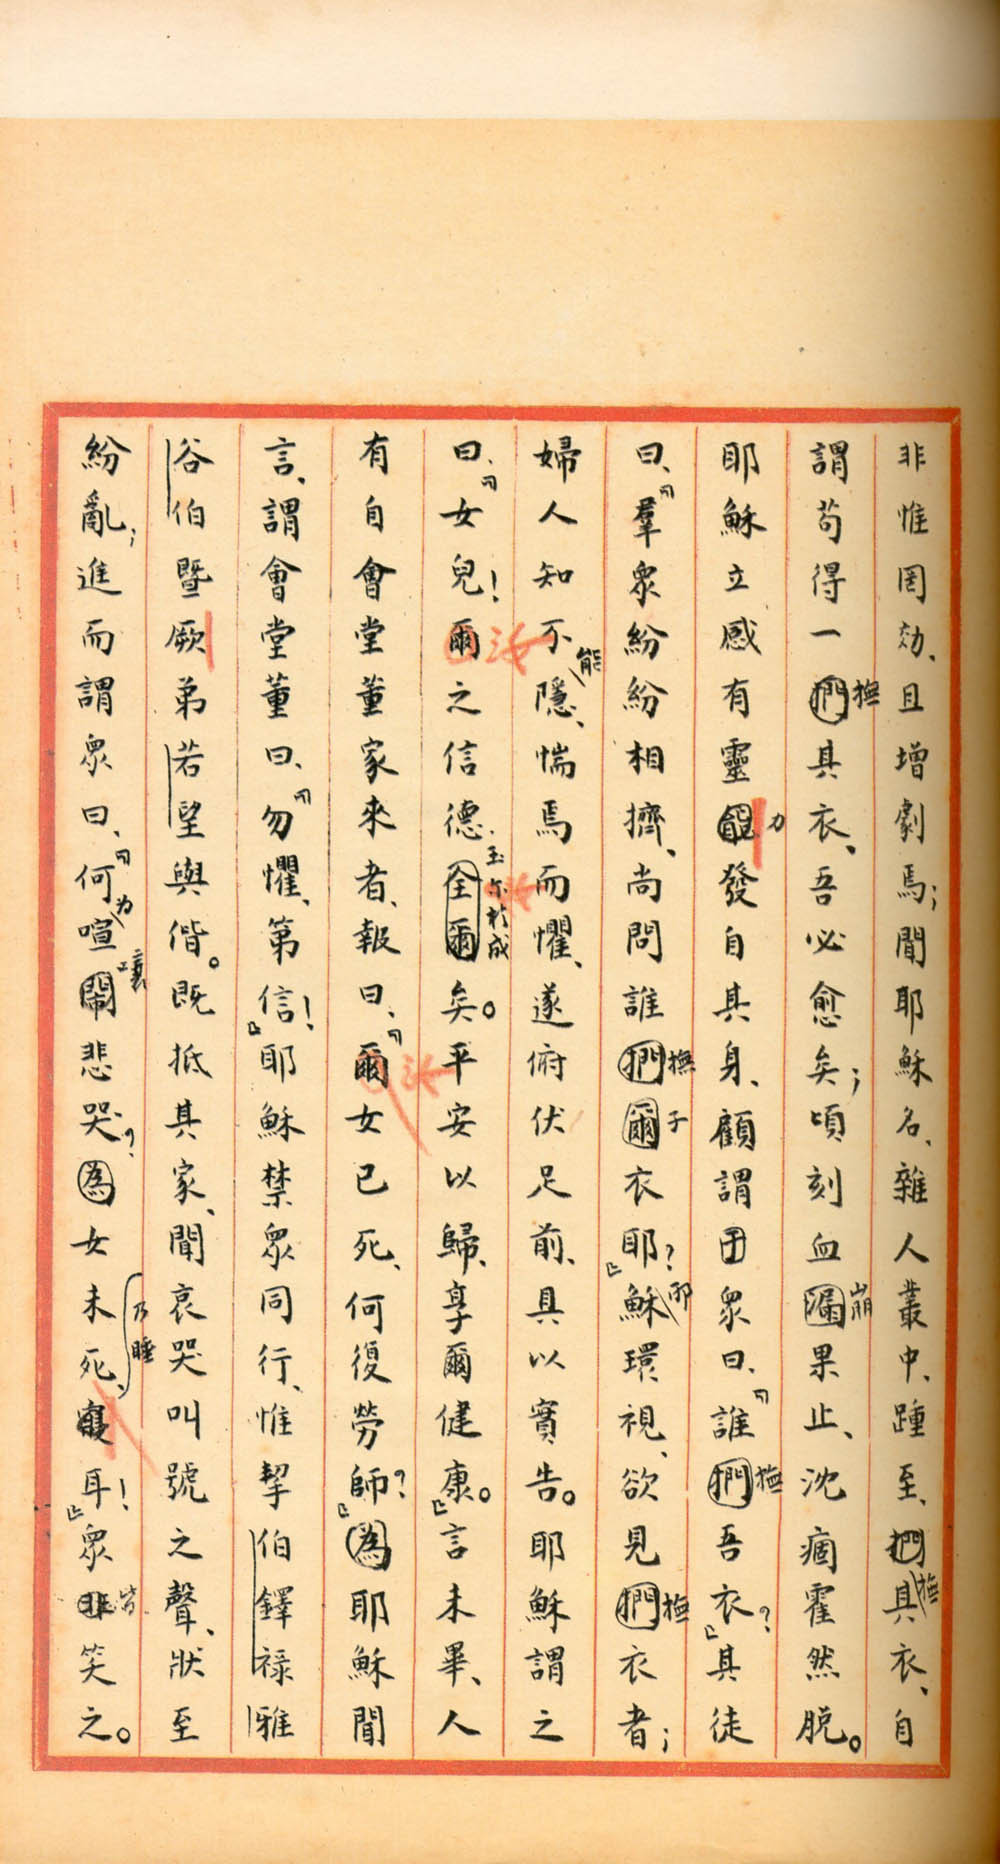 非惟罔効、且增劇焉；聞耶穌名、雜人叢中、踵至、捫撫其衣、自
謂苟得一捫撫其衣、吾必愈矣；頃刻血漏崩果止、沈痼霍然脫。
耶穌立感有靈能力發自其身、顧謂眾曰、「誰捫撫吾衣？」其徒
曰、「羣眾紛紛相擠、尚問誰捫撫爾子衣耶？」耶穌環視、欲見捫撫衣者；
婦人知不能隱、惴焉而懼、遂俯伏足前、具以實告。耶穌謂之
曰、「女兒！爾汝之信德、全爾玉汝於成矣。平安以歸、享爾健康。」言未畢、人
有自會堂董家來者、報曰、「爾汝女已死、何復勞師？」為耶穌聞
言、謂會堂董曰、「勿懼、第信！」耶穌禁眾同行、惟挈伯鐸祿雅
谷伯暨厥弟若望與偕。既抵其家、聞哀哭叫號之聲、狀至
紛亂；進而謂眾曰、「何為喧鬧嚷悲哭？為女未死、乃睡寢耳！」眾非皆笑之。